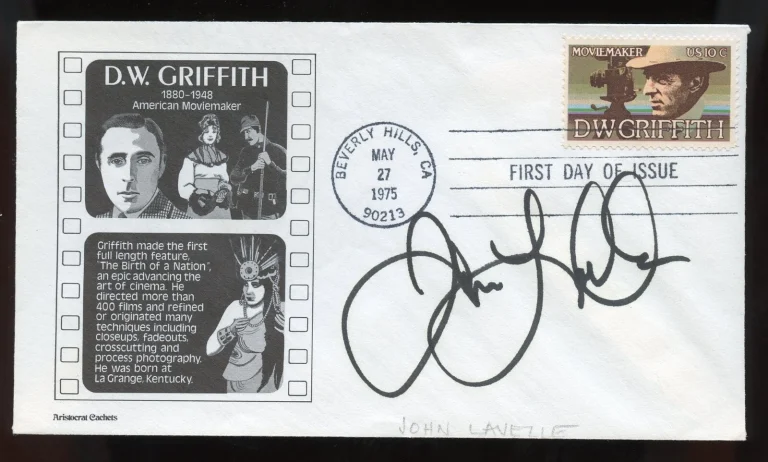 D.W. GRIFFITH
1880-1948
American Moviemaker
Griffith made the first
full length feature,
"The Birth of a Nation",
an epic advancing the
art of cinema. He
directed more than
400 films and refined
or originated many
techniques including
closeups, fadeouts,
crosscutting and
process photography.
He was born at
La Grange, Kentucky.
Aristocrat Cachets
BEVERLY HILLS, CA
MAY
27
1975
90213
MOVIEMAKER US 10c
DW GRIFFITH
FIRST DAY OF ISSUE
JOHN LAVEZZE